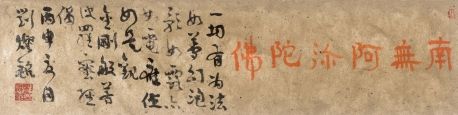 南無阿弥陀佛
一切有為法
如夢幻泡
影如露亦
如電應作
如是觀
金剛般若
波羅蜜經
偈
丙申夏月
劉燦銘